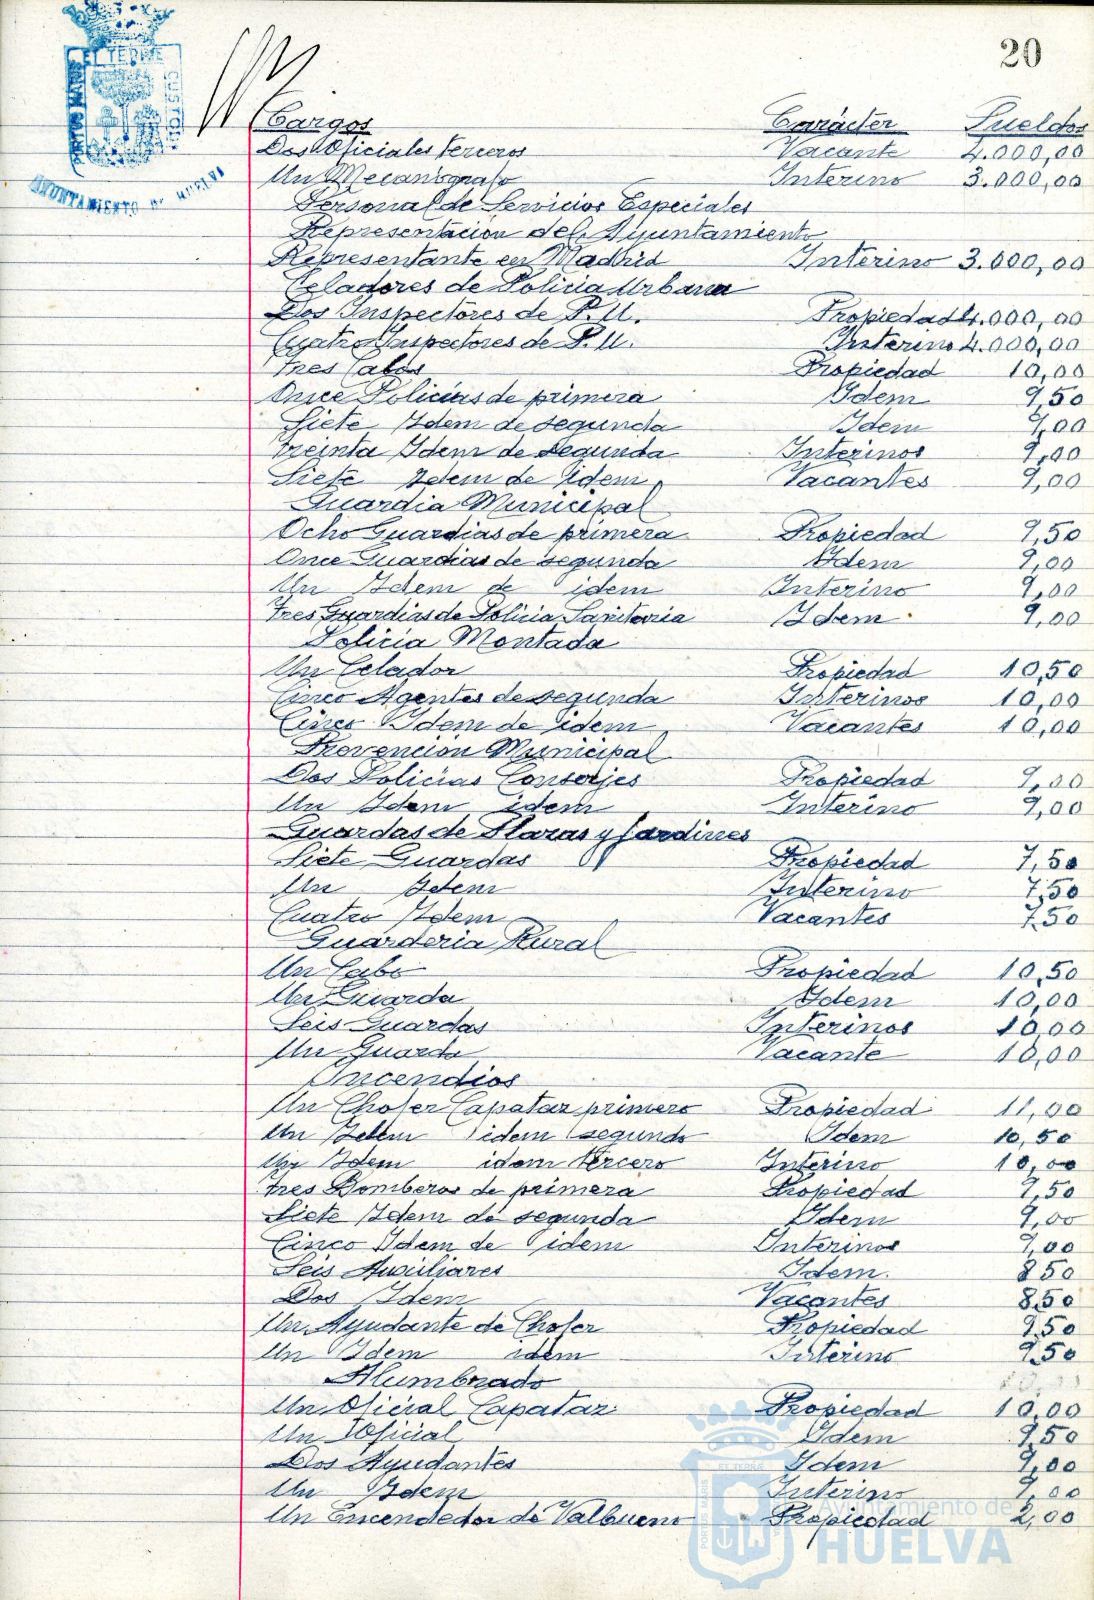 20
PORTUS MARIS ET TERRAE CUSTODIA
AYUNTAMIENTO DE HUELVA
Cargos Carácter Sueldos
Dos Oficiales terceros Vacante 4.000,00
Un Mecanógrafo Interino 3.000,00
Personal de Servicios Especiales
Representación del Ayuntamiento
Representante en Madrid Interino 3.000,00
Celadores de Policia Urbana
Dos Inspectores de P.U. Propiedad 4.000,00
Cuatro Inspectores de P.U. Interino 4.000,00
Tres Cabos Propiedad 10,00
Once Policías de primera Idem 9,50
Siete Idem de segunda Idem 9,00
Treinta Idem de segunda Interinos 9,00
Siete Idem de idem Vacantes 9,00
Guardia Municipal
Ocho Guardias de primera Propiedad 9,50
Once Guardias de segunda Idem 9,00
Un Idem de idem Interino 9,00
Tres Guardias de Policia Sanitaria Idem 9,00
Policia Montada
Un Celador Propiedad 10,50
Cinco Agentes de segunda Interinos 10,00
Cinco Idem de idem Vacantes 10,00
Prevención Municipal
Dos Policías Conserjes Propiedad 9,00
Un Idem idem Interino 9,00
Guardas de Plazas y Jardines
Siete Guardas Propiedad 7,50
Un Idem Interino 7,50
Cuatro Idem Vacantes 7,50
Guarderia Rural
Un Cabo Propiedad 10,50
Un Guarda Idem 10,00
Seis Guardas Interinos 10,00
Un Guarda Vacante 10,00
Incendios
Un Chofer Capataz primero Propiedad 11,00
Un Idem idem segundo Idem 10,50
Un Idem idem tercero Interino 10,00
Tres Bomberos de primera Propiedad 9,50
Siete Idem de segunda Idem 9,00
Cinco Idem de idem Interinos 9,00
Seis Auxiliares Idem. 8,50
Dos Idem Vacantes 8,50
Un Ayudante de Chofer Propiedad 9,50
Un Idem idem Interino 9,50
Alumbrado
Un Oficial Capataz Propiedad 10,00
Un Oficial Idem 9,50
Dos Ayudantes Idem 9,00
Un Idem Interino 9,00
Un Encendedor de Valbueno Propiedad 2,00
Ayuntamiento de
HUELVA